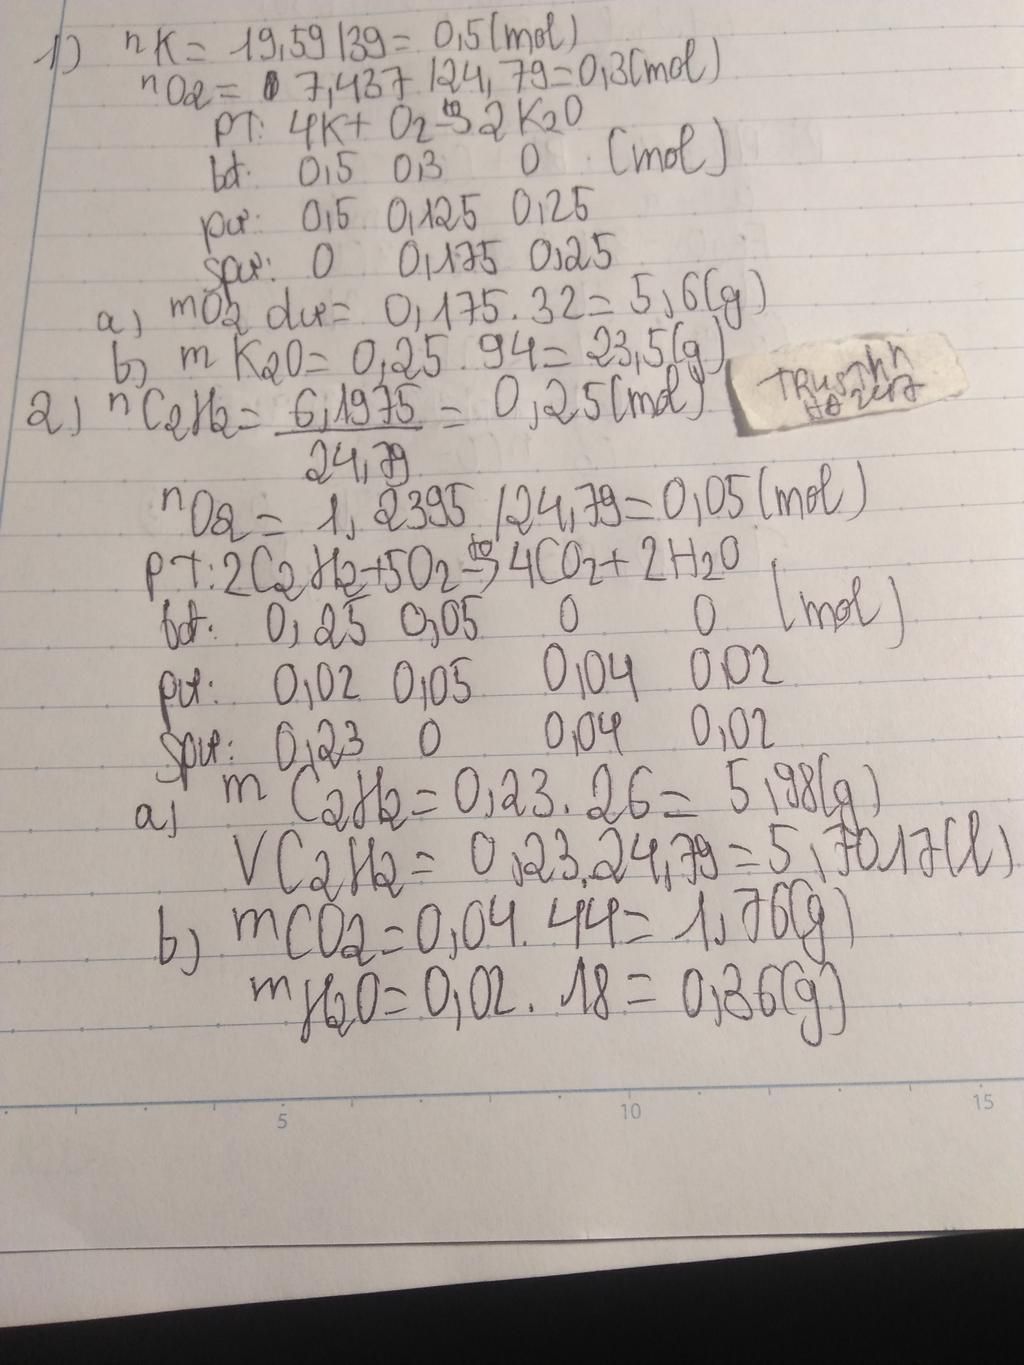 1) nK = 19,59/39 = 0,5(mol)
nO2 = 7,437/24,79 = 0,3(mol)
PT: 4K + O2 -to-> 2K2O
bđ: 0,5 0,3 0 (mol)
pư: 0,5 0,125 0,25
spư: 0 0,175 0,25
a) mO2 dư = 0,175.32 = 5,6(g)
b) mK2O = 0,25.94 = 23,5(g)
2) nC2H2 = 6,1975/24,79 = 0,25(mol)
TRUSTHH
nO2 = 1,2395/24,79 = 0,05(mol)
PT: 2C2H2 + 5O2 -to-> 4CO2 + 2H2O
bđ: 0,25 0,05 0 0 (mol)
pư: 0,02 0,05 0,04 0,02
spư: 0,23 0 0,04 0,02
a) mC2H2 = 0,23.26 = 5,98(g)
VC2H2 = 0,23.24,79 = 5,7017(l)
b) mCO2 = 0,04.44 = 1,76(g)
mH2O = 0,02.18 = 0,36(g)
5 10 15